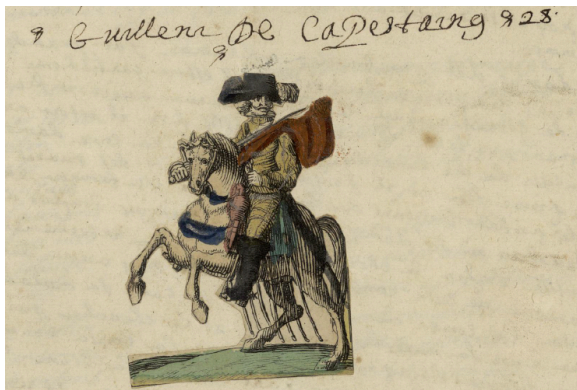 Guillem De Capestaing 28.